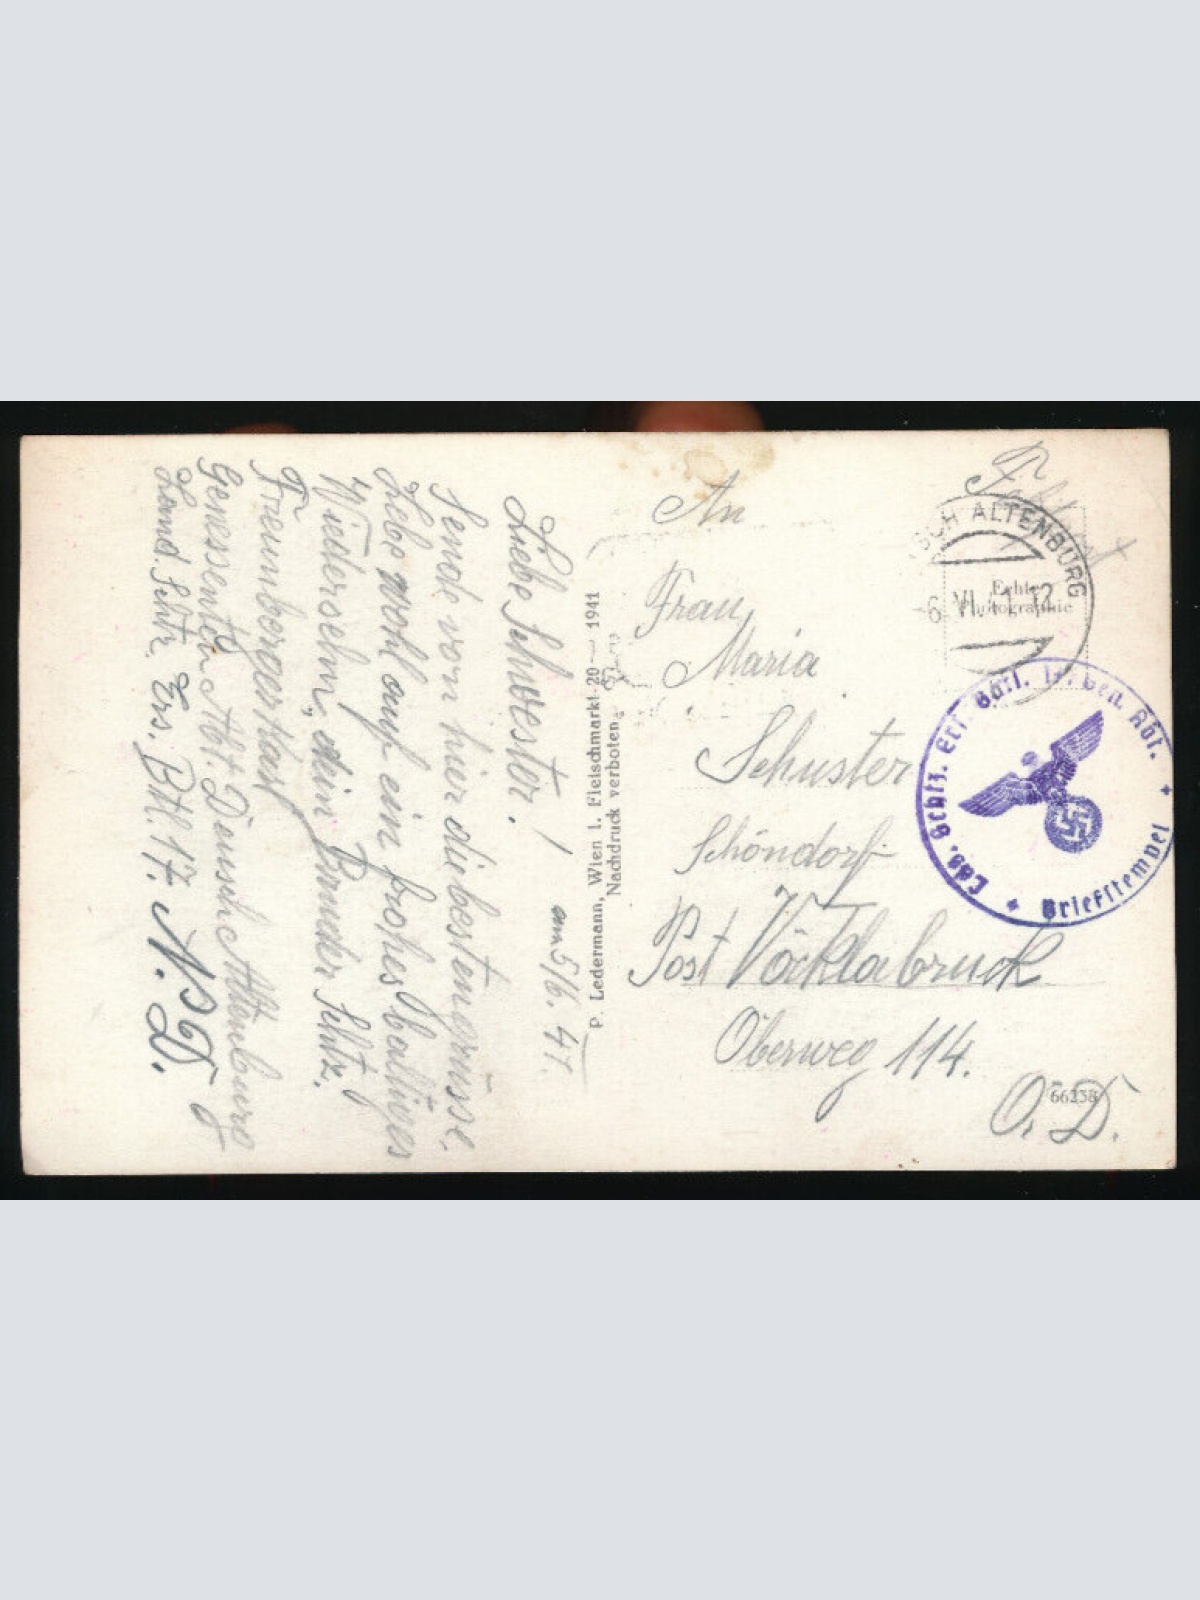 am 5/6. 41.
Liebe Schwester!
Sende von hier die besten grüsse,
Lebe wohl auf ein frohes baldiges
Wiedersehn, dein Bruder Schtz.
Gennessenden Abt. Deutsch Altenburg
Land. Schtz. Ers. Btl. 17. N. D.
P. Ledermann, Wien I. Fleischmarkt 20 — 1941
Nachdruck verboten
An
Frau
Maria
Schuster
Schöndorf
Post Vöcklabruck
Oberweg 114.
O. D.
66238
Feldpost
Echte
Photographie
SCH ALTENBURG
6. VI. 41. 12
Lds. Schtz. Ers. Batl. Gen. Abt.
Briefstempel